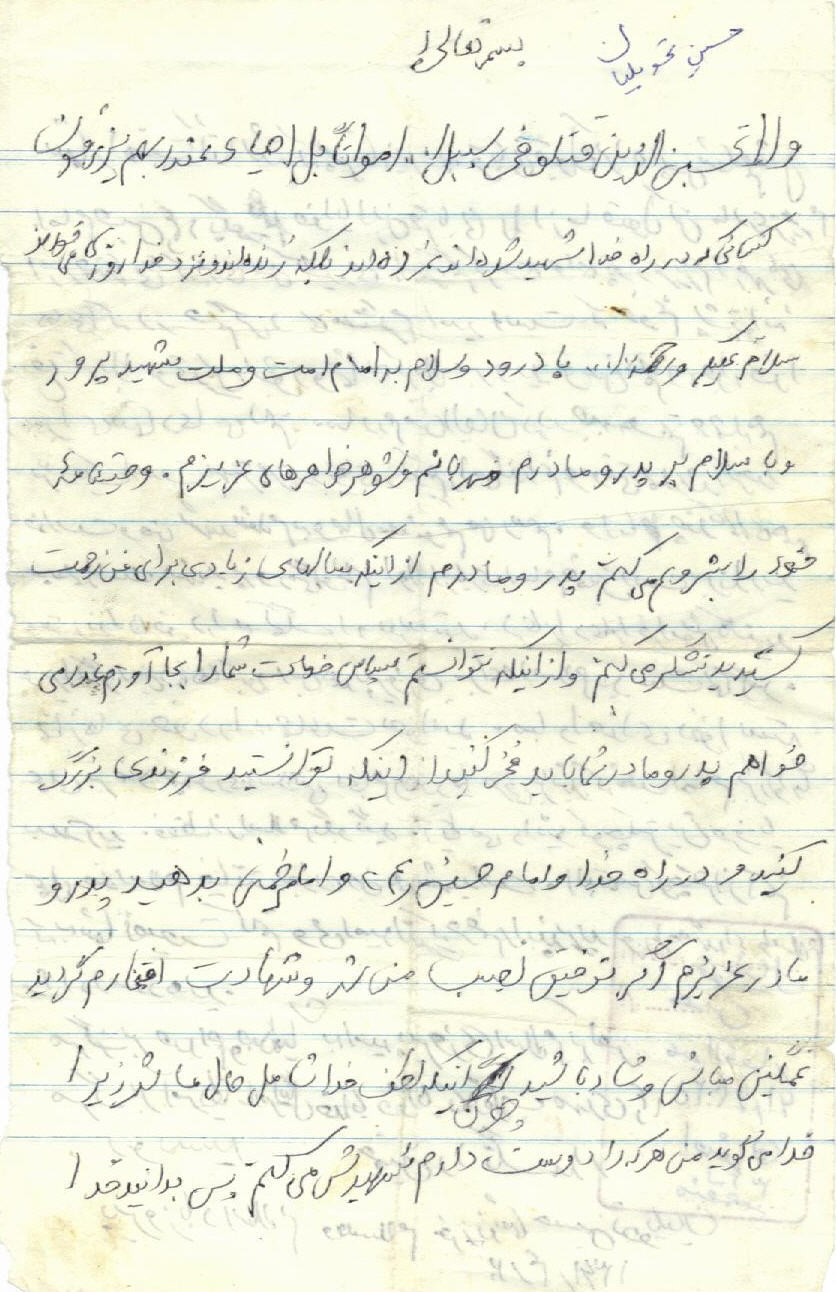 حسین تحویلیان
بسمه تعالی
ولا تحسبن الذین قتلو فی سبیل ا... امواتاً بل احیاء عند ربهم یرزقون
کسانی که در راه خدا شهید شده‌اند نمرده‌اند بلکه زنده‌اند و نزد خدا روزی می‌خورند
سلام علیکم و رحمة ا... با درود و سلام به امام امت و ملت شهید پرور
و با سلام بر پدر و مادرم مهربانم و شوهر خواهرهای عزیزم . وصیتنامهٔ
خود را شروع می کنم پدر و مادرم از اینکه سالهای زیادی برای من زحمت
کشیدید تشکر می کنم و از اینکه نتوانستم سپاس خدمات شما را بجا آورم عذر می
خواهم پدر و مادر شما باید فخر کنید از اینکه توانستید فرزندی بزرگ
کنید و در راه خدا و امام حسین (ع) و امام خمینی بدهید پدر و
مادر عزیزم اگر توفیق نصیب من شد و شهادت افتخارم گردید
غمگین مباش و شاد باشید چون اینکه لطف خدا شامل حال ما شد زیرا
خدا می گوید من هر که را دوست دارم شهیدش می کنم پس بدانید خدا